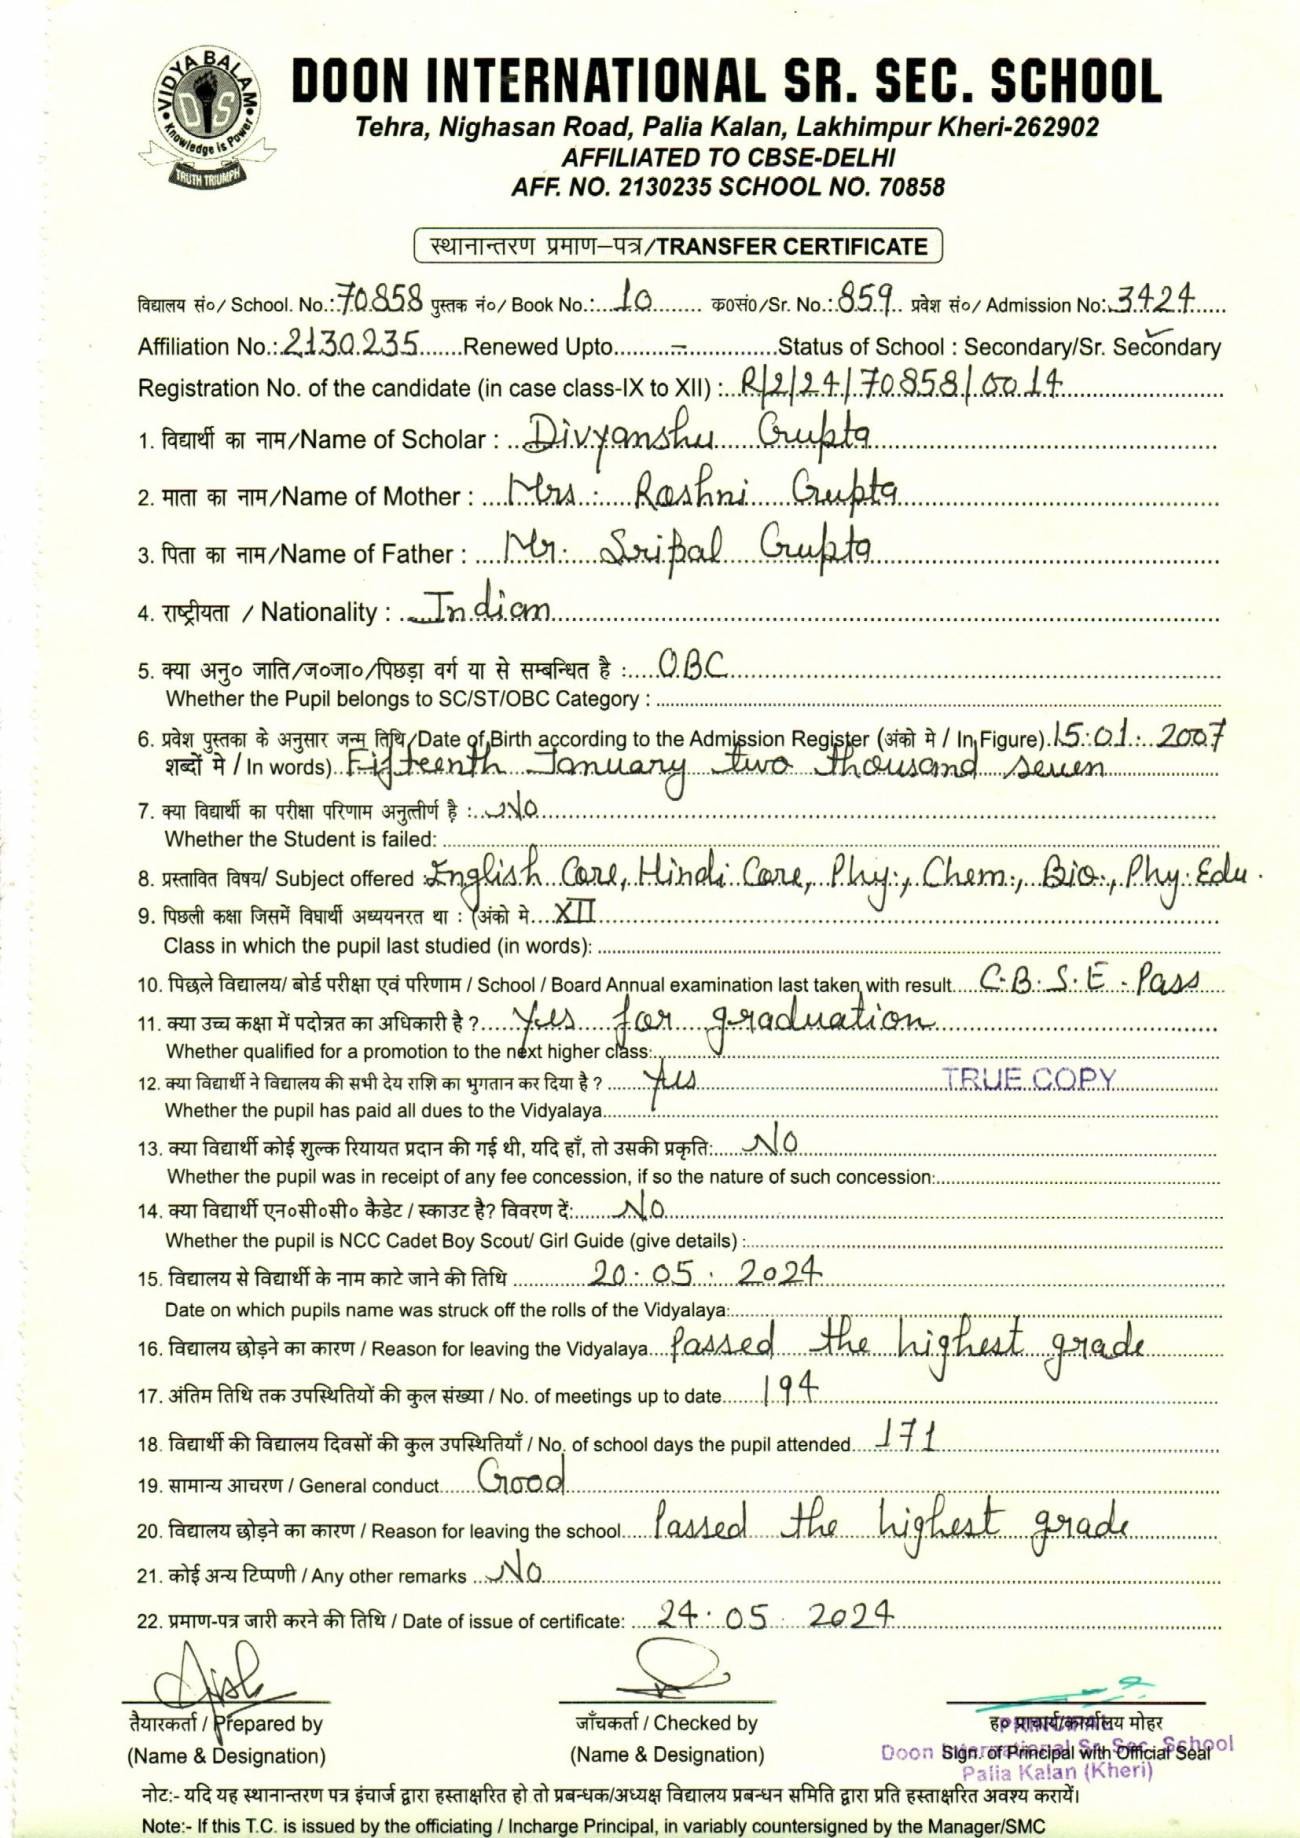 VIDYA BALAM
DS
Knowledge is Power
TRUTH TRIUMPH
DOON INTERNATIONAL SR. SEC. SCHOOL
Tehra, Nighasan Road, Palia Kalan, Lakhimpur Kheri-262902
AFFILIATED TO CBSE-DELHI
AFF. NO. 2130235 SCHOOL NO. 70858
स्थानान्तरण प्रमाण–पत्र/TRANSFER CERTIFICATE
विद्यालय सं०/ School. No.: 70858 पुस्तक नं०/ Book No.: 10 क०सं०/Sr. No.: 859 प्रवेश सं०/ Admission No: 3424
Affiliation No.: 2130235 Renewed Upto – Status of School : Secondary/Sr. Secondary
Registration No. of the candidate (in case class-IX to XII) : R/2/24/70858/0014
1. विद्यार्थी का नाम/Name of Scholar : Divyanshu Gupta
2. माता का नाम/Name of Mother : Mrs. Roshni Gupta
3. पिता का नाम/Name of Father : Mr. Sripal Gupta
4. राष्ट्रीयता / Nationality : Indian
5. क्या अनु० जाति/ज०जा०/पिछड़ा वर्ग या से सम्बन्धित है : OBC
Whether the Pupil belongs to SC/ST/OBC Category :
6. प्रवेश पुस्तका के अनुसार जन्म तिथि/Date of Birth according to the Admission Register (अंको मे / In Figure). 15.01.2007
शब्दों मे / In words) Fifteenth January two thousand seven
7. क्या विद्यार्थी का परीक्षा परिणाम अनुत्तीर्ण है : No
Whether the Student is failed:
8. प्रस्तावित विषय/ Subject offered : English Core, Hindi Core, Phy., Chem., Bio., Phy. Edu.
9. पिछली कक्षा जिसमें विद्यार्थी अध्ययनरत था : (अंको मे XII
Class in which the pupil last studied (in words):
10. पिछले विद्यालय/ बोर्ड परीक्षा एवं परिणाम / School / Board Annual examination last taken with result C.B.S.E - Pass
11. क्या उच्च कक्षा में पदोन्नत का अधिकारी है ? Yes for graduation
Whether qualified for a promotion to the next higher class:
12. क्या विद्यार्थी ने विद्यालय की सभी देय राशि का भुगतान कर दिया है ? Yes TRUE COPY
Whether the pupil has paid all dues to the Vidyalaya
13. क्या विद्यार्थी कोई शुल्क रियायत प्रदान की गई थी, यदि हाँ, तो उसकी प्रकृति: No
Whether the pupil was in receipt of any fee concession, if so the nature of such concession:
14. क्या विद्यार्थी एन०सी०सी० कैडेट / स्काउट है? विवरण दें: No
Whether the pupil is NCC Cadet Boy Scout/ Girl Guide (give details) :
15. विद्यालय से विद्यार्थी के नाम काटे जाने की तिथि 20.05.2024
Date on which pupils name was struck off the rolls of the Vidyalaya:
16. विद्यालय छोड़ने का कारण / Reason for leaving the Vidyalaya Passed the highest grade
17. अंतिम तिथि तक उपस्थितियों की कुल संख्या / No. of meetings up to date 194
18. विद्यार्थी की विद्यालय दिवसों की कुल उपस्थितियाँ / No. of school days the pupil attended 171
19. सामान्य आचरण / General conduct Good
20. विद्यालय छोड़ने का कारण / Reason for leaving the school Passed the highest grade
21. कोई अन्य टिप्पणी / Any other remarks No
22. प्रमाण-पत्र जारी करने की तिथि / Date of issue of certificate: 24.05.2024
तैयारकर्ता / Prepared by जाँचकर्ता / Checked by ह० प्राचार्य/कार्यालय मोहर
PRINCIPAL
(Name & Designation) (Name & Designation) Sign. of Principal with Official Seal
Doon International Sr. Sec. School
Palia Kalan (Kheri)
नोट:- यदि यह स्थानान्तरण पत्र इंचार्ज द्वारा हस्ताक्षरित हो तो प्रबन्धक/अध्यक्ष विद्यालय प्रबन्धन समिति द्वारा प्रति हस्ताक्षरित अवश्य करायें।
Note:- If this T.C. is issued by the officiating / Incharge Principal, in variably countersigned by the Manager/SMC